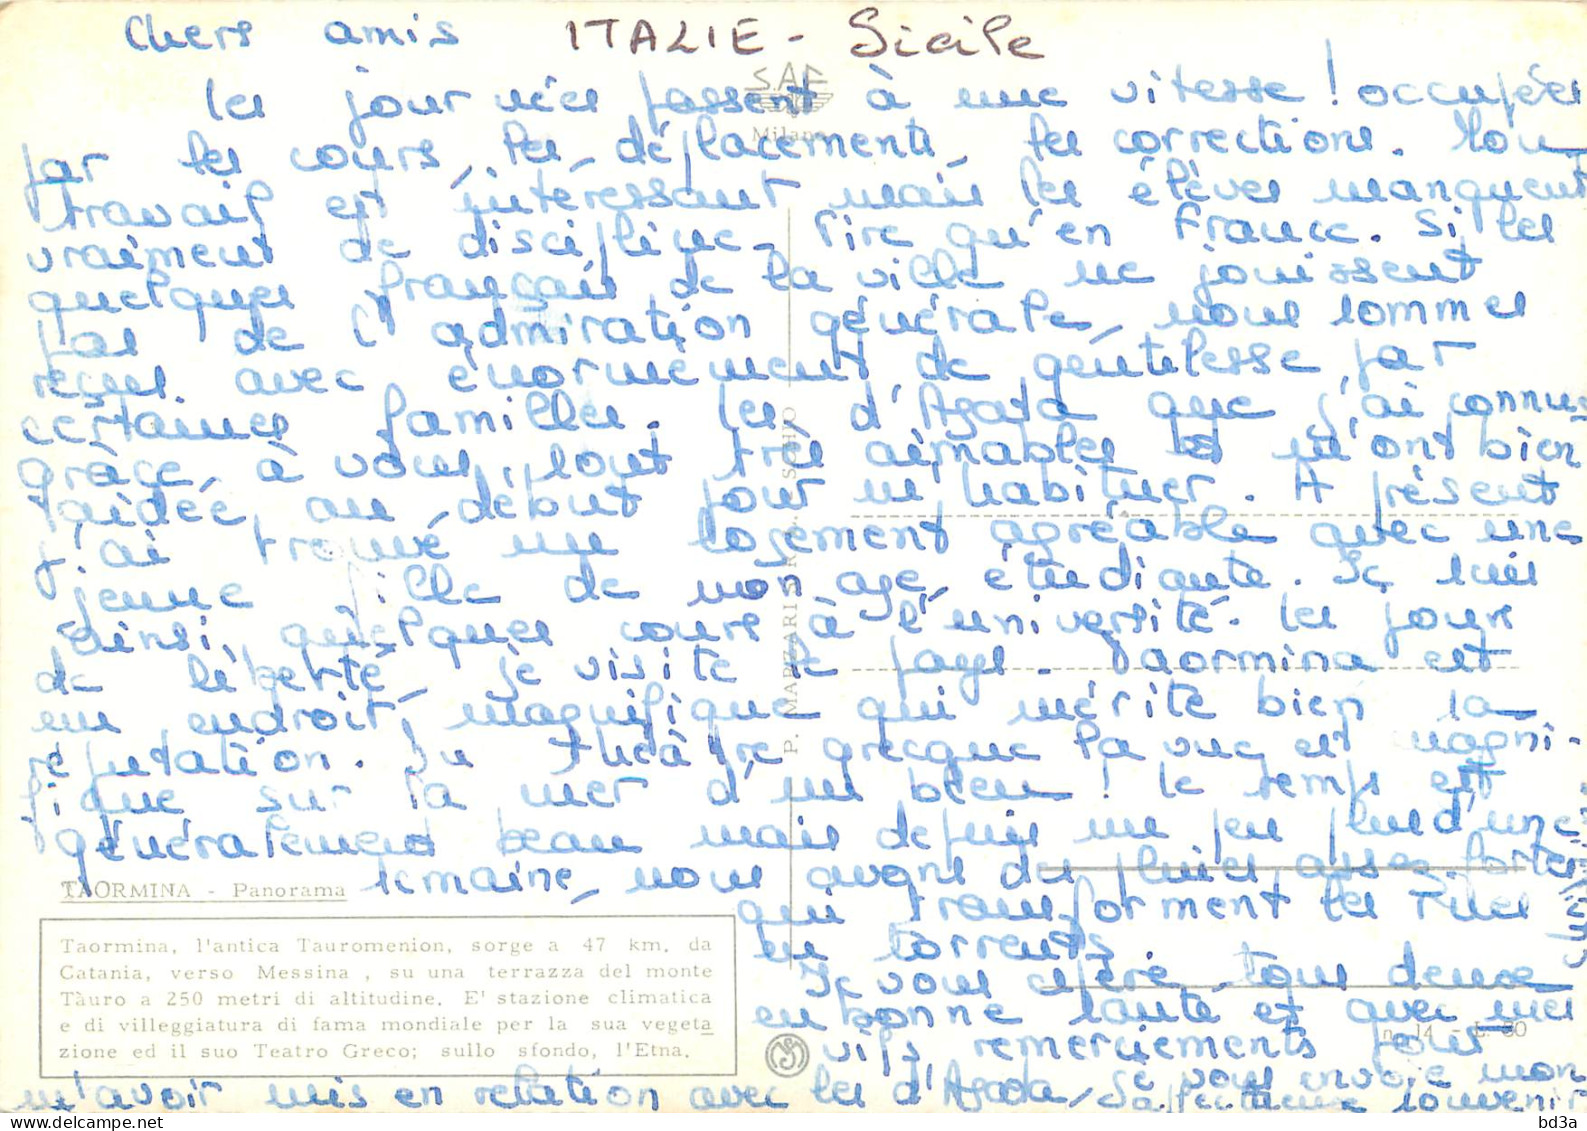 Chers amis ITALIE - Sicile
SAF
Milano
les journées passent à une vitesse ! occupées
par les cours, les déplacements, les corrections. Mon
travail est intéressant mais les élèves manquent
vraiment de discipline, pire qu'en France. Si les
quelques français de la ville ne jouissent
pas de l'admiration générale, nous sommes
reçus avec énormément de gentillesse par
certaines familles. les d'Agata que j'ai connus
grâce à vous, sont très aimables et m'ont bien
aidée, au début pour m'habituer. A présent
j'ai trouvé un logement agréable avec une
jeune fille de mon âge, étudiante. Je suis
ainsi, quelques cours à l'université. les jours
de liberté, je visite le pays. Taormina est
un endroit magnifique qui mérite bien sa
réputation. Du théâtre grecque la vue est magni-
fique sur la mer d'un bleu ! le temps est
généralement beau mais depuis un peu plus d'une
semaine, nous avons des pluies assez fortes
qui transforment les rues
en torrents.
Je vous espère tous deux
en bonne santé et avec mes
vifs remerciements pour
m'avoir mis en relation avec les d'Agata, je vous envoie mon
affectueux souvenir
TAORMINA - Panorama
Taormina, l'antica Tauromenion, sorge a 47 km. da
Catania, verso Messina, su una terrazza del monte
Tàuro a 250 metri di altitudine. E' stazione climatica
e di villeggiatura di fama mondiale per la sua vegeta
zione ed il suo Teatro Greco; sullo sfondo, l'Etna.
n. 14
delcampe.net
bd3a